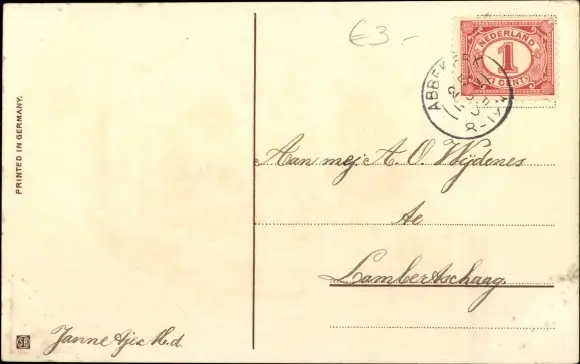 €3.-
NEDERLAND
1
CENT
ABBEK
8-1
PRINTED IN GERMANY.
Aan mej. A. O. Wijdenes
Ae
Lambertschaag.
Janne